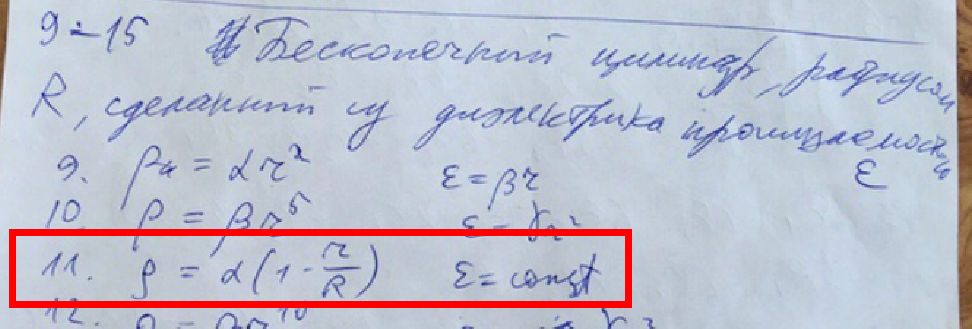 9-15 Бесконечный цилиндр, радиусом
R, сделанный из диэлектрика проницаемостью
ε
9. ρ = αr² ε = βr
10. ρ = βr⁵ ε - γr²
11. ρ = α(1 - r/R) ε = const
12.